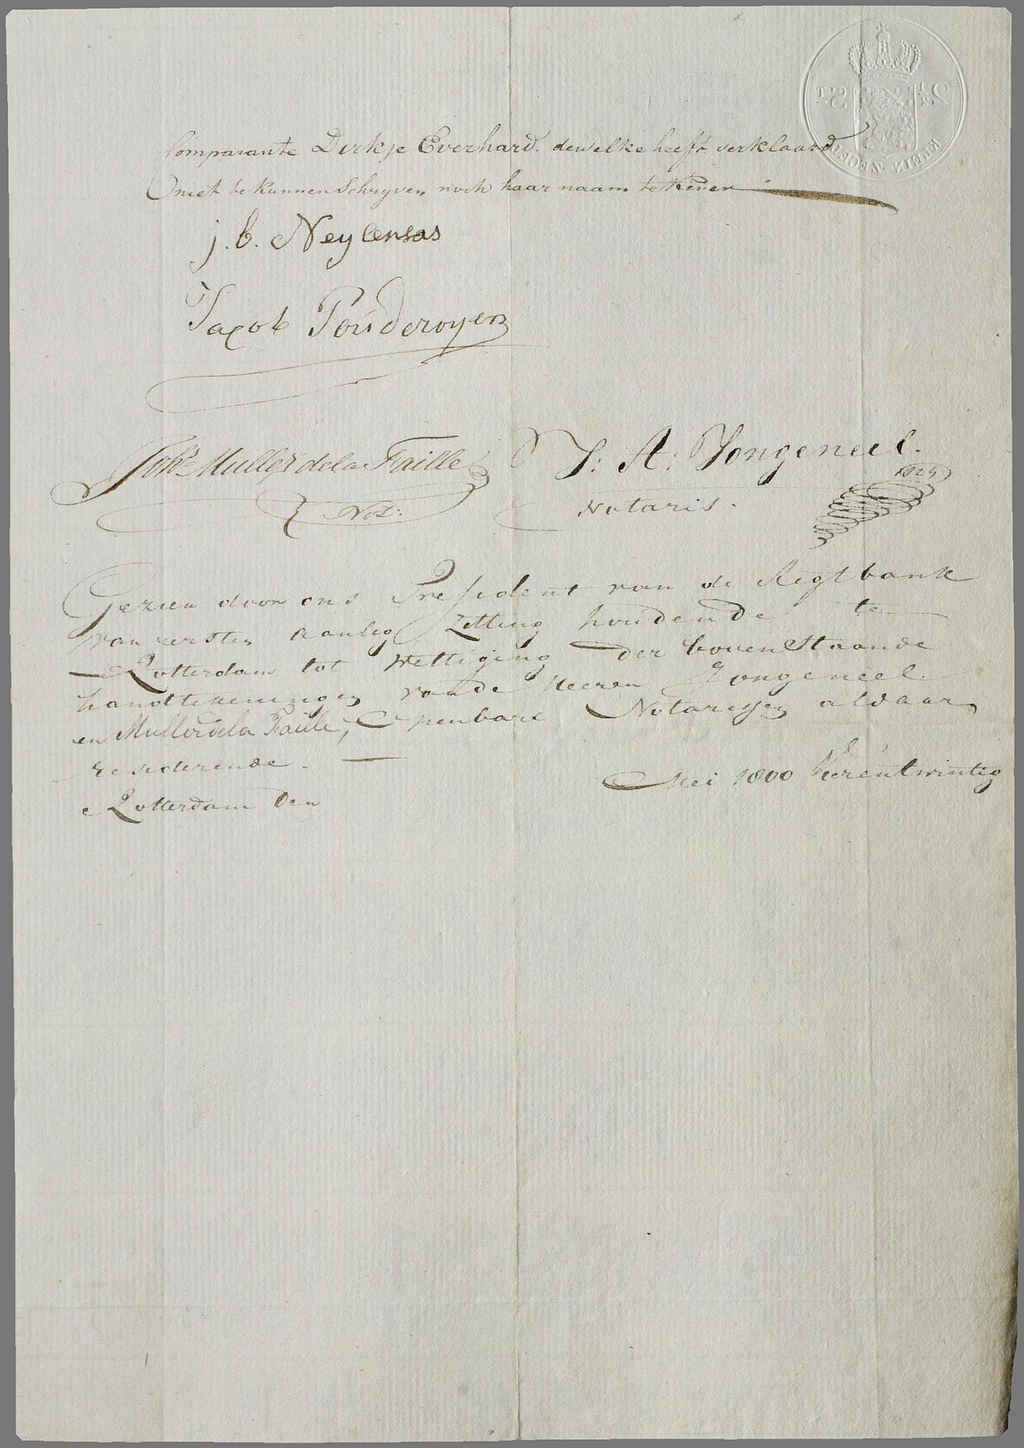 Comparante Dirkje Everhard. dewelke heeft verklaard
niet te kunnen Schryven noch haar naam tetekenen
j. b. Neylensas
Jacob Pouderoyen
Joh.s Muller de la Faille J: A: Jongeneel.
Not: Notaris. 1824
Gezien door ons President van de Regtbank
van eersten aanleg Zitting houdende te
Rotterdam tot Wettiging der bovenstaande
handtekeningen van de Heeren Jongeneel.
en Muller de la Faille, Openbare Notarissen aldaar
resiederende.
Rotterdam den Mei 1800 Vierentwintig